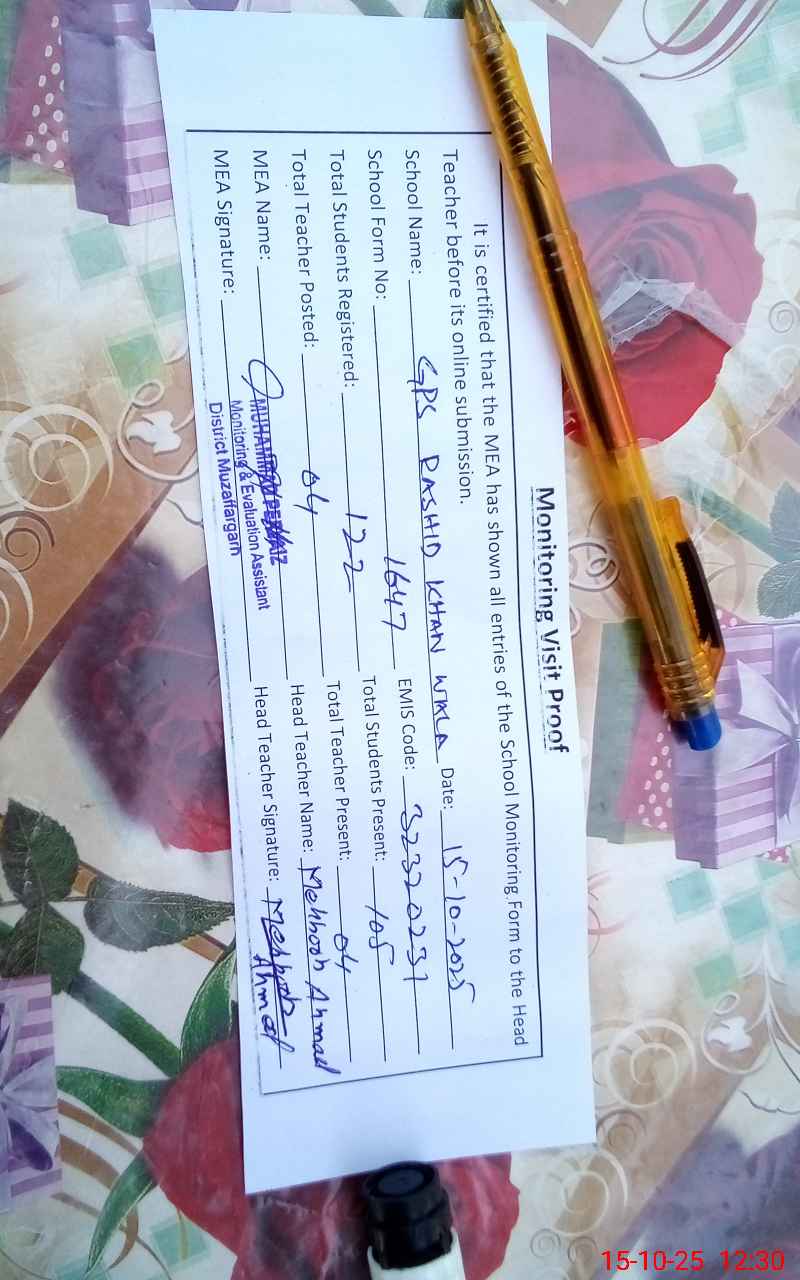 Monitoring Visit Proof
It is certified that the MEA has shown all entries of the School Monitoring Form to the Head
Teacher before its online submission.
School Name: GPS RASHID KHAN WALA Date: 15-10-2025
School Form No: 1647 EMIS Code: 32320231
Total Students Registered: 122 Total Students Present: 105
Total Teacher Posted: 04 Total Teacher Present: 04
MEA Name: Head Teacher Name: Mehboob Ahmad
MUHAMMAD
MEA Signature: Head Teacher Signature: Mehboob Ahmad
Monitoring & Evaluation Assistant
District Muzaffargarh
15-10-25 12:30